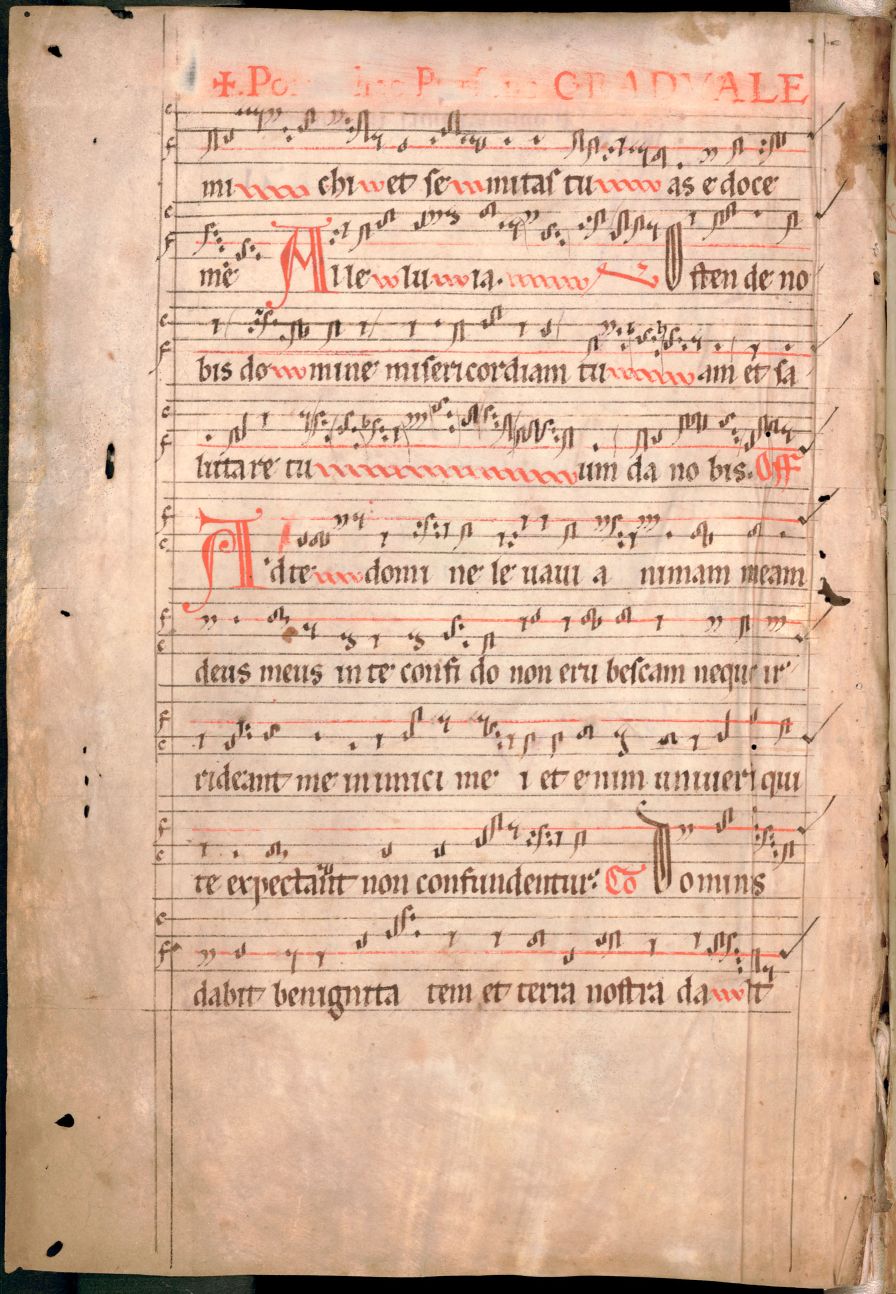 GRADVALE
mi chi et semitas tu as edoce
me Alleluia. Osten de no
bis domine misericordiam tu am et sa
lutare tu um da no bis. Off
Ad te domi ne le uaui a nimam meam
deus meus in te confi do non eru bescam neque ir
rideant me inimici me i et enim uniuersi qui
te expectant non confundentur. Co Dominus
dabit benignita tem et terra nostra da it